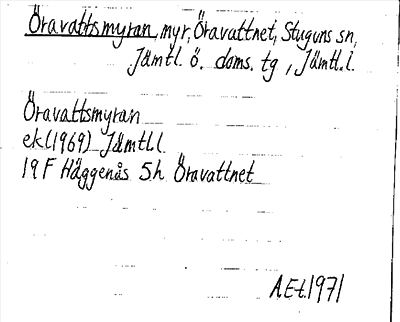 Öravattsmyran, myr, Öravattnet, Stuguns sn,
Jämtl. ö. doms. tg, Jämtl. l.
Öravattsmyran
ek (1969) Jämtl.l.
19F Häggenås 5h Öravattnet
A.Et.1971